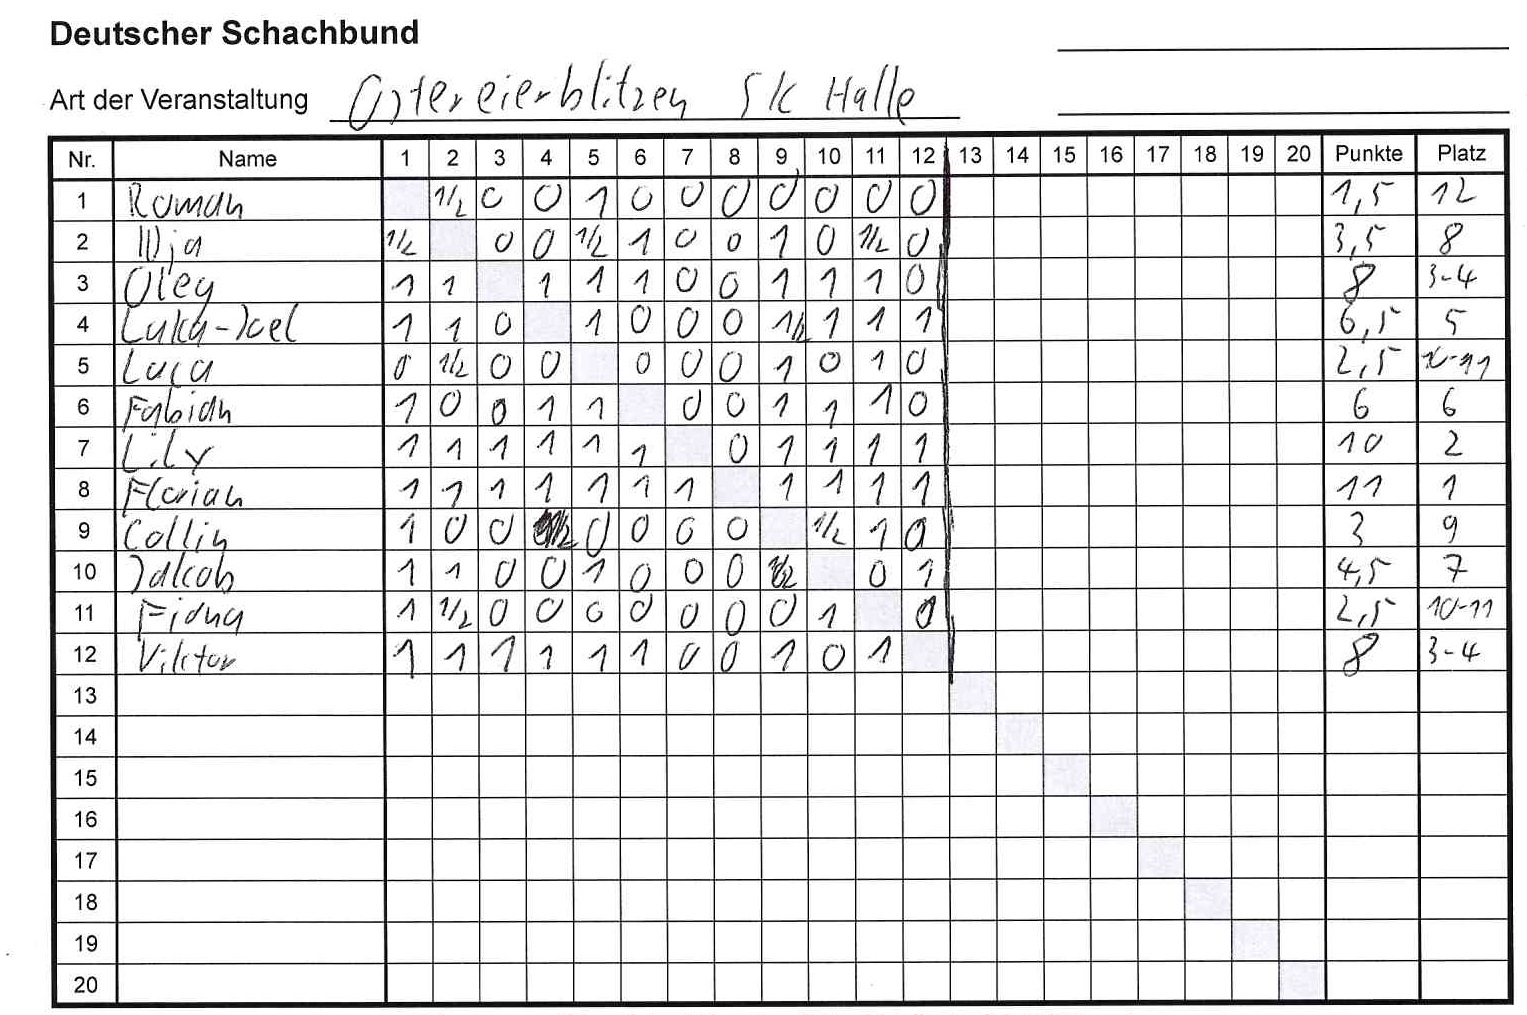 Deutscher Schachbund
Art der Veranstaltung Ostereierblitzen SK Halle
Nr. Name 1 2 3 4 5 6 7 8 9 10 11 12 13 14 15 16 17 18 19 20 Punkte Platz
1 Roman 1/2 0 0 1 0 0 0 0 0 0 0 1,5 12
2 Ilja 1/2 0 0 1/2 1 0 0 1 0 1/2 0 3,5 8
3 Oleg 1 1 1 1 1 0 0 1 1 1 0 8 3-4
4 Luka-Joel 1 1 0 1 0 0 0 1/2 1 1 1 6,5 5
5 Luca 0 1/2 0 0 0 0 0 1 0 1 0 2,5 10-11
6 Fabian 1 0 0 1 1 0 0 1 1 1 0 6 6
7 Lily 1 1 1 1 1 1 0 1 1 1 1 10 2
8 Florian 1 1 1 1 1 1 1 1 1 1 1 11 1
9 Collin 1 0 0 1/2 0 0 0 0 1/2 1 0 3 9
10 Jakob 1 1 0 0 1 0 0 0 1/2 0 1 4,5 7
11 Fiona 1 1/2 0 0 0 0 0 0 0 1 0 2,5 10-11
12 Viktor 1 1 1 1 1 1 0 0 1 0 1 8 3-4
13
14
15
16
17
18
19
20